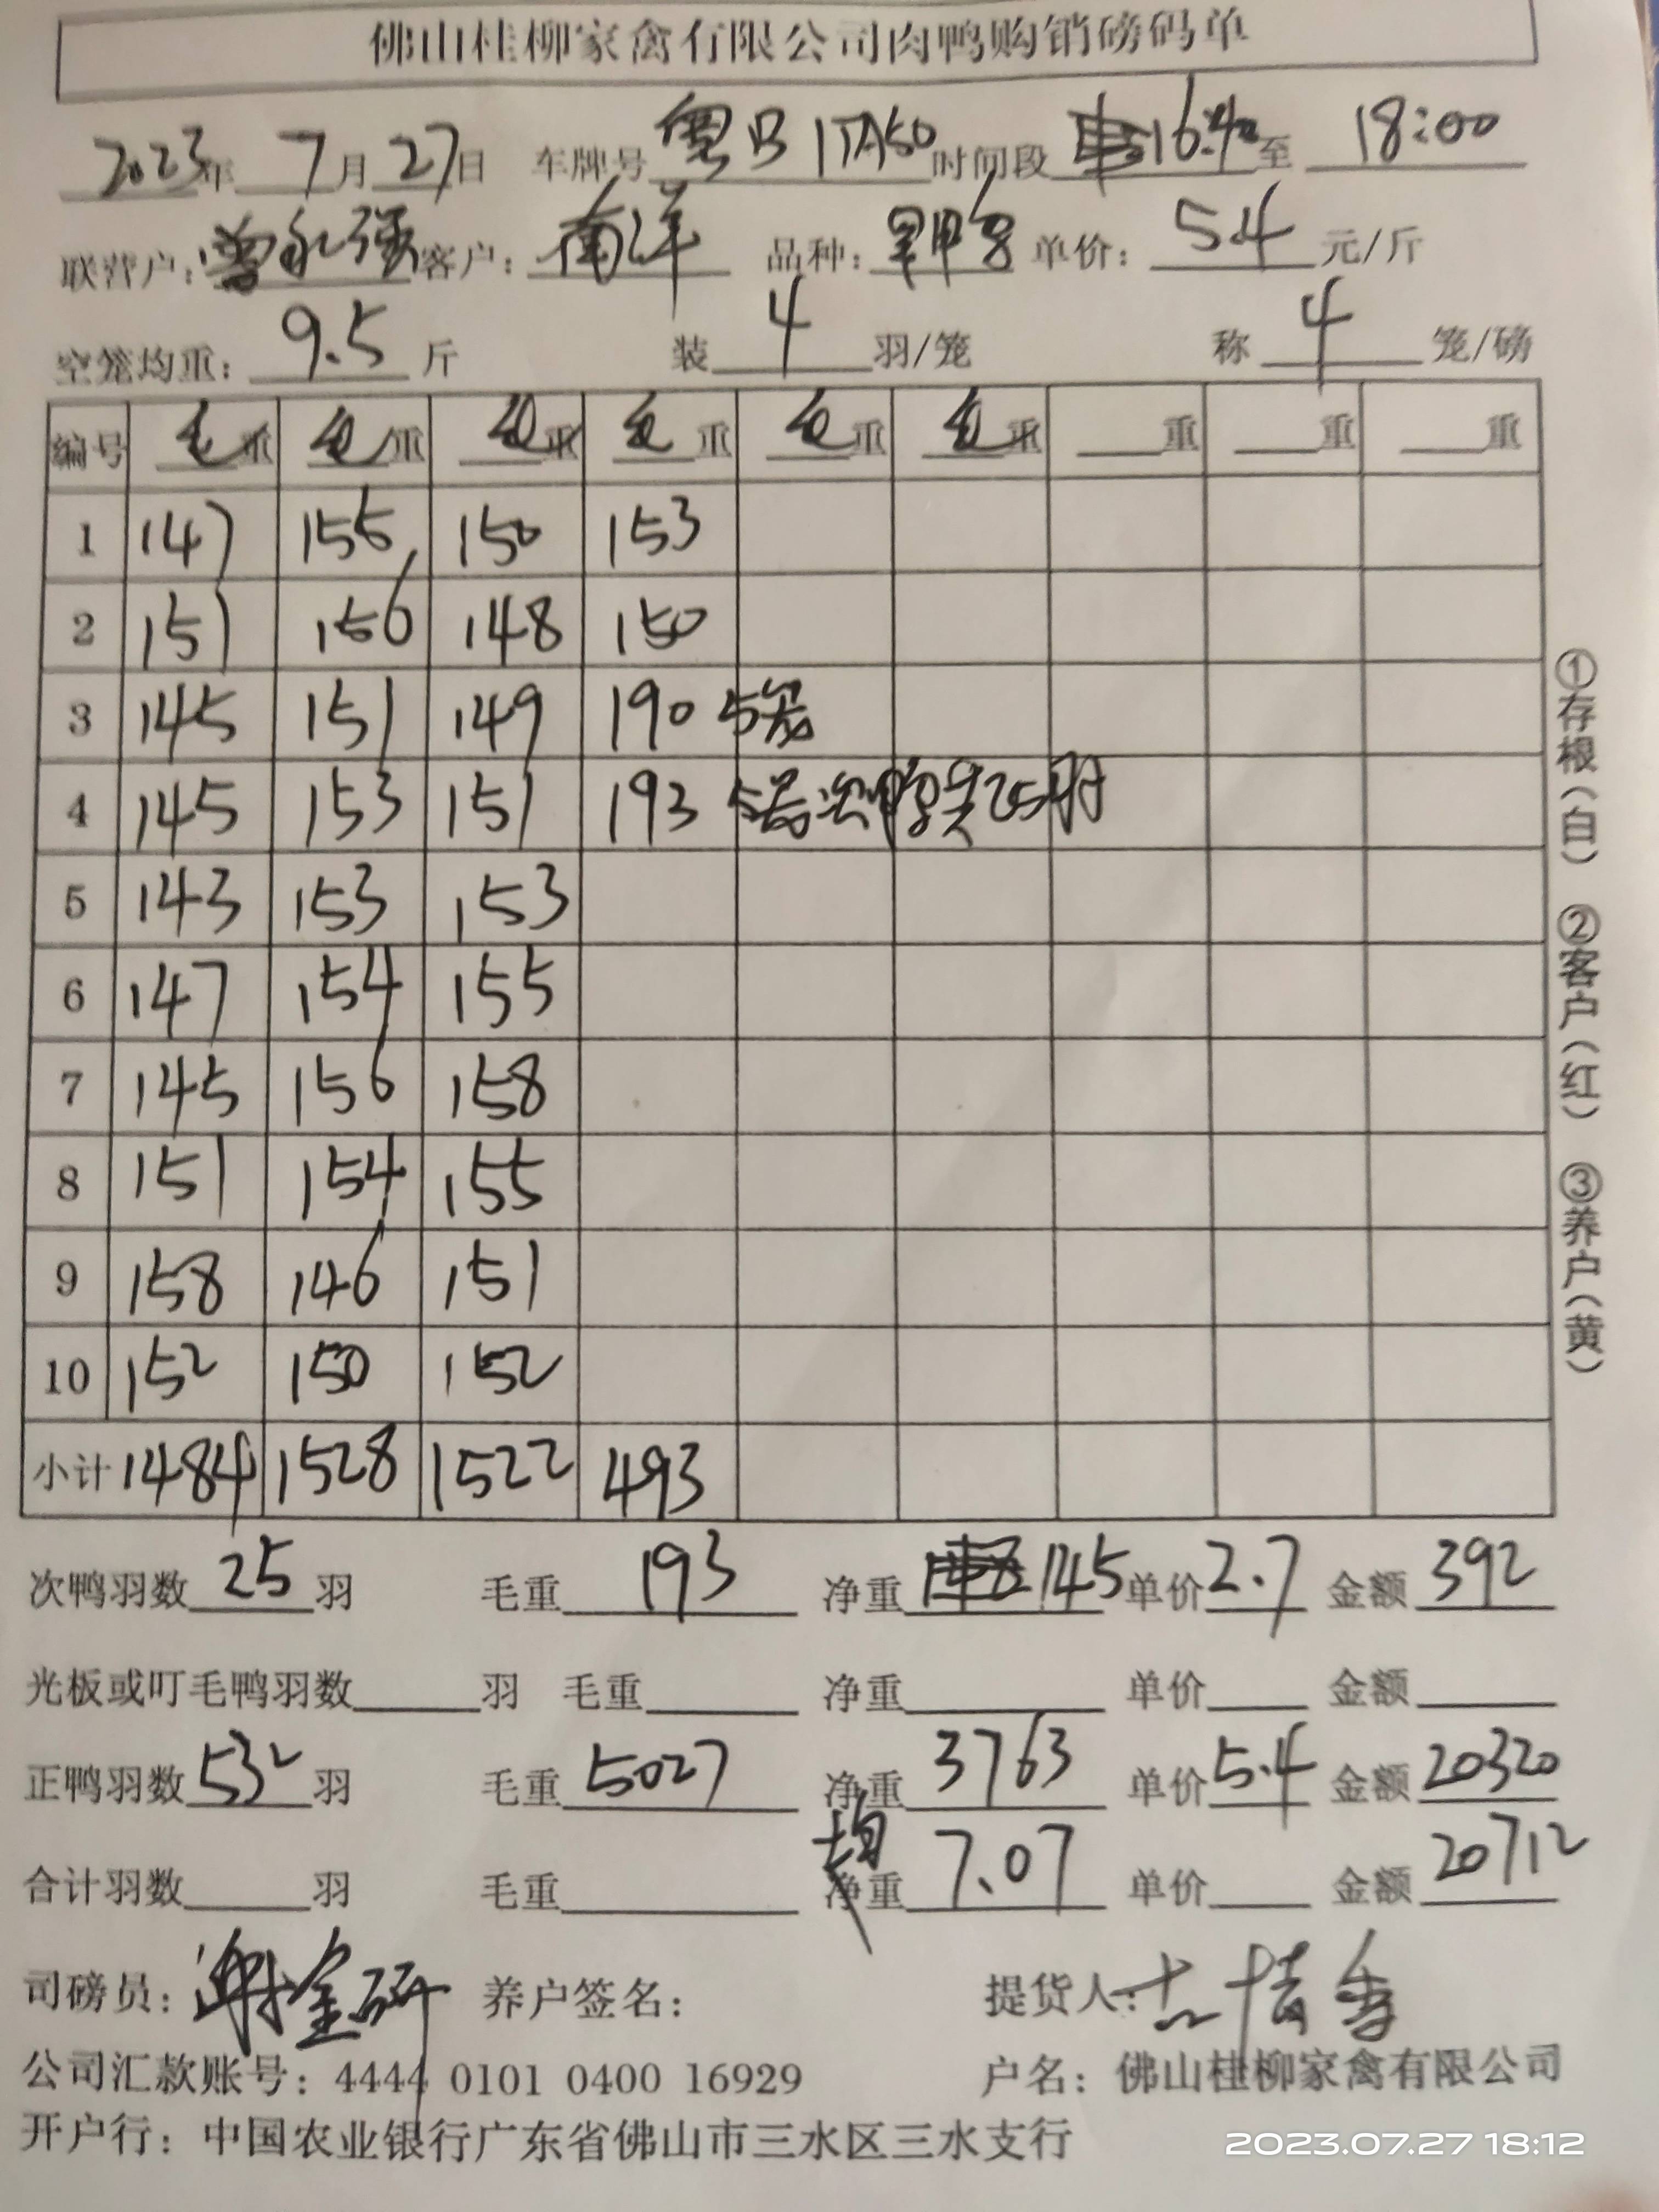 佛山桂柳家禽有限公司肉鸭购销磅码单
2023年 7月 27日 车牌号 粤B 时间段 16:40 至 18:00
联营户：曾永强 客户：南洋 品种： 单价：5.4 元/斤
空笼均重：9.5 斤 装 4 羽/笼 称 4 笼/磅
编号 毛重 毛重 毛重 毛重 毛重 毛重 重 重 重
1 147 155 150 153
2 151 156 148 150
3 145 151 149 190 5笼
4 145 153 151 193 5笼次鸭 25羽
5 143 153 153
6 147 154 155
7 145 156 158
8 151 154 155
9 158 146 151
10 152 150 152
小计 1484 1528 1522 493
次鸭羽数 25 羽 毛重 193 净重 145 单价 2.7 金额 392
光板或叮毛鸭羽数 羽 毛重 净重 单价 金额
正鸭羽数 532 羽 毛重 5027 净重 3763 单价 5.4 金额 20320
合计羽数 羽 毛重 均重 7.07 单价 金额 20712
司磅员：谢金研 养户签名： 提货人：
公司汇款账号：4444 0101 0400 16929 户名：佛山桂柳家禽有限公司
开户行：中国农业银行广东省佛山市三水区三水支行
①存根（白） ②客户（红） ③养户（黄）
2023.07.27 18:12